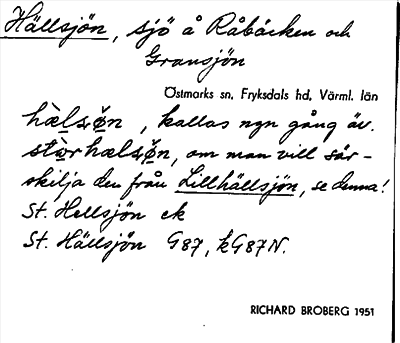 Hällsjön, sjö å Råbäcken och
Gransjön
Östmarks sn, Fryksdals hd, Värml. län
hæ̀lsøn, kallas ngn gång äv.
stòrhælsøn, om man vill sär-
skilja den från Lillhällsjön, se denna!
St. Hellsjön ek
St. Hällsjön G87, kG87N.
RICHARD BROBERG 1951